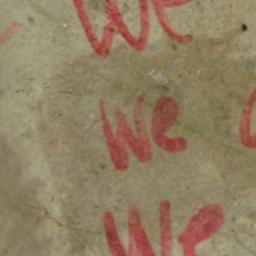 We
We
We